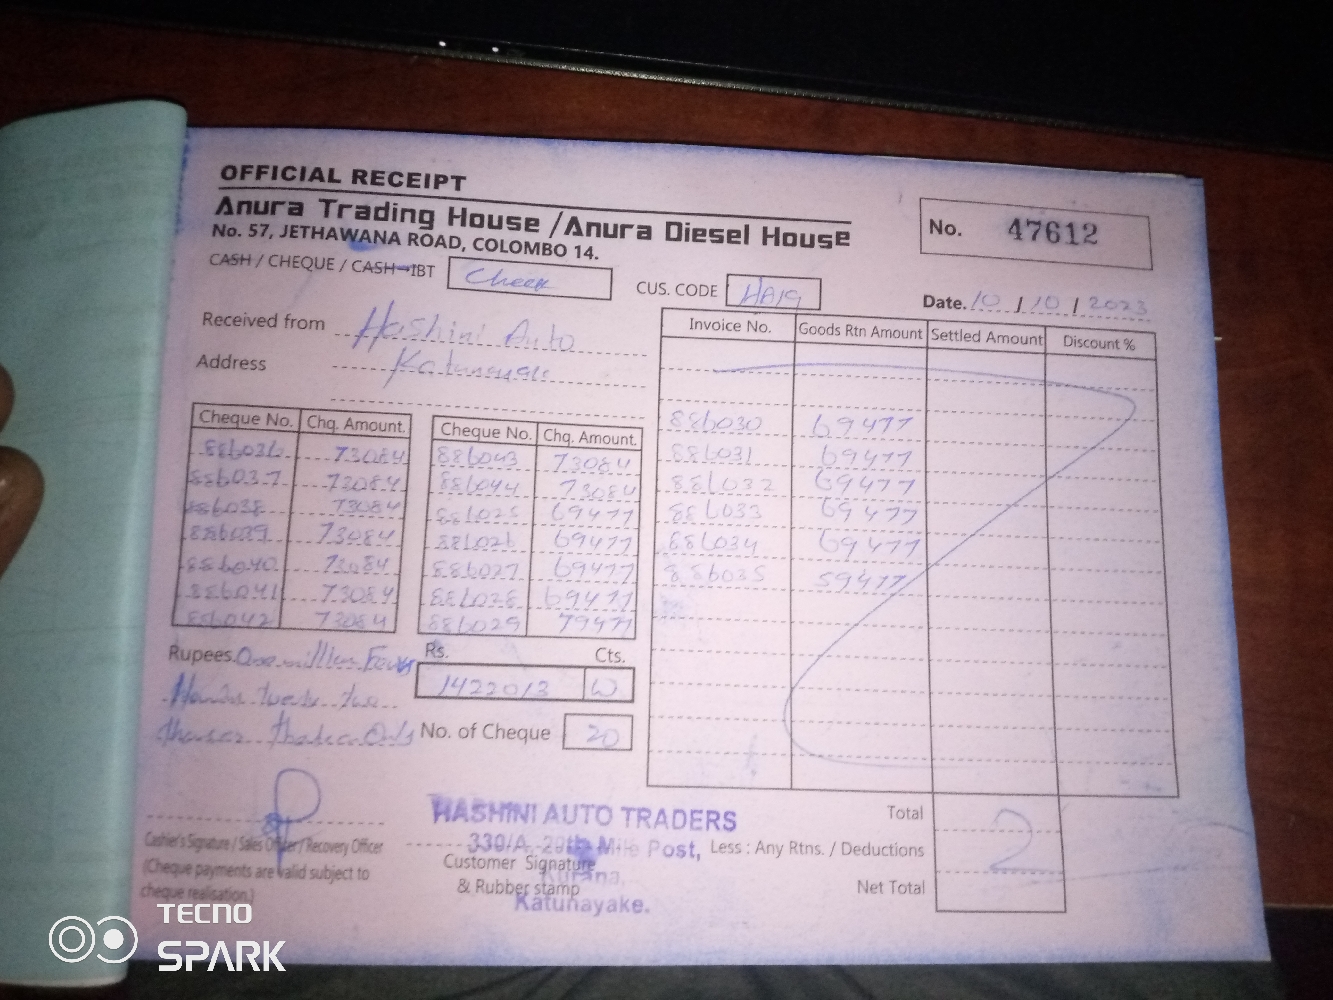 OFFICIAL RECEIPT
Anura Trading House /Anura Diesel House
No. 57, JETHAWANA ROAD, COLOMBO 14.
No. 47612
CASH / CHEQUE / CASH IBT
CUS. CODE HA19
Date. 10 / 10 / 2023
Received from Hashini Auto
Address
Invoice No. Goods Rtn Amount Settled Amount Discount %
886030 69477
886031 69477
886032 69477
886033 69477
886034 69477
886035 59477
Cheque No. Chq. Amount. Cheque No. Chq. Amount.
886036 73084 886043 73084
886037 73084 886044 73084
886038 73084 886025 69477
886039 73084 886026 69477
886040 73084 886027 69477
886041 73084 886028 69477
886042 73084 886029 79477
Rupees One million Four
twenty two
Rs. Cts.
1422013
No. of Cheque 20
Cashier's Signature / Sales Officer / Recovery Officer
(Cheque payments are valid subject to
cheque realisation.)
HASHINI AUTO TRADERS
330/A, 20th Mile Post,
Kurana,
Katunayake.
Customer Signature
& Rubber stamp
Total
Less : Any Rtns. / Deductions
Net Total
TECNO
SPARK